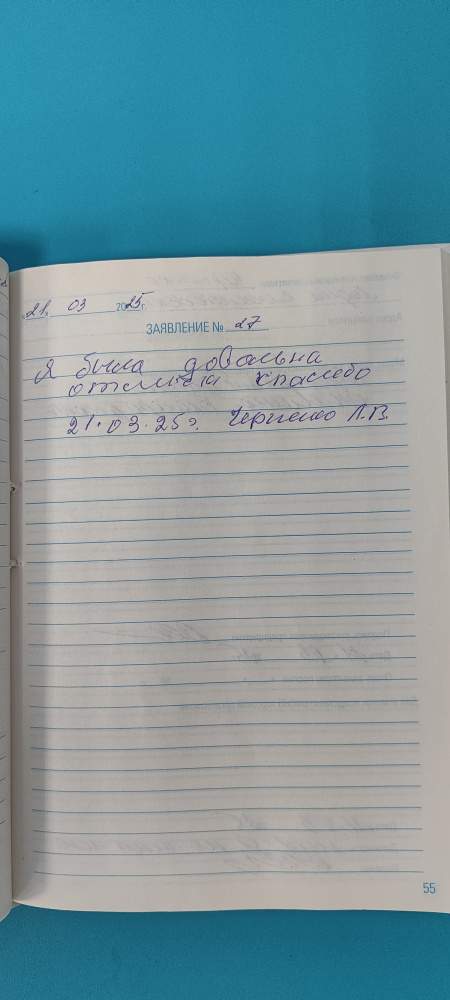 21. 03 2025г.
ЗАЯВЛЕНИЕ № 27
Я была довольна
спасибо
21.03.25г. Л.В.
55